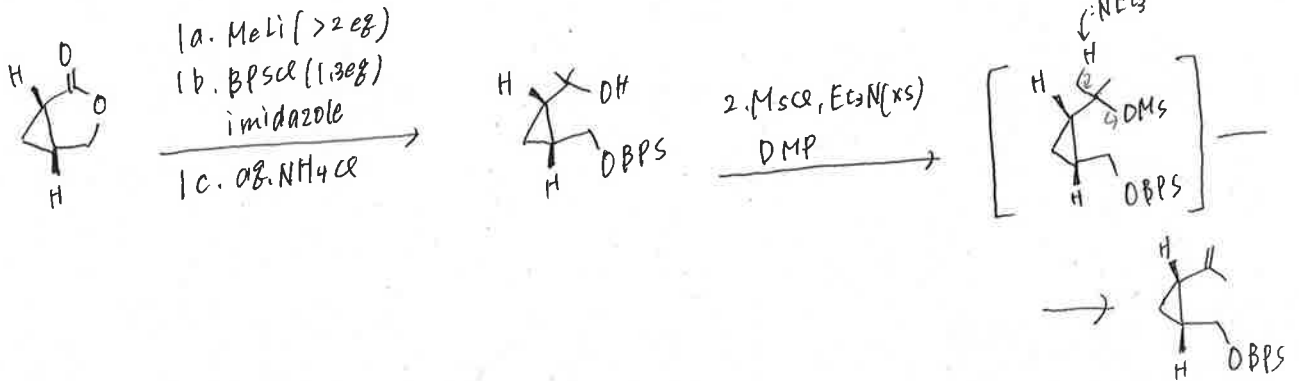 H
O
O
H
1a. MeLi (>2eq)
1b. BPSCl (1.3eq)
imidazole
1c. aq. NH4Cl
H
OH
OBPS
H
2. MsCl, Et3N (xs)
DMP
:NEt3
H
H
OMs
OBPS
H
H
OBPS
H